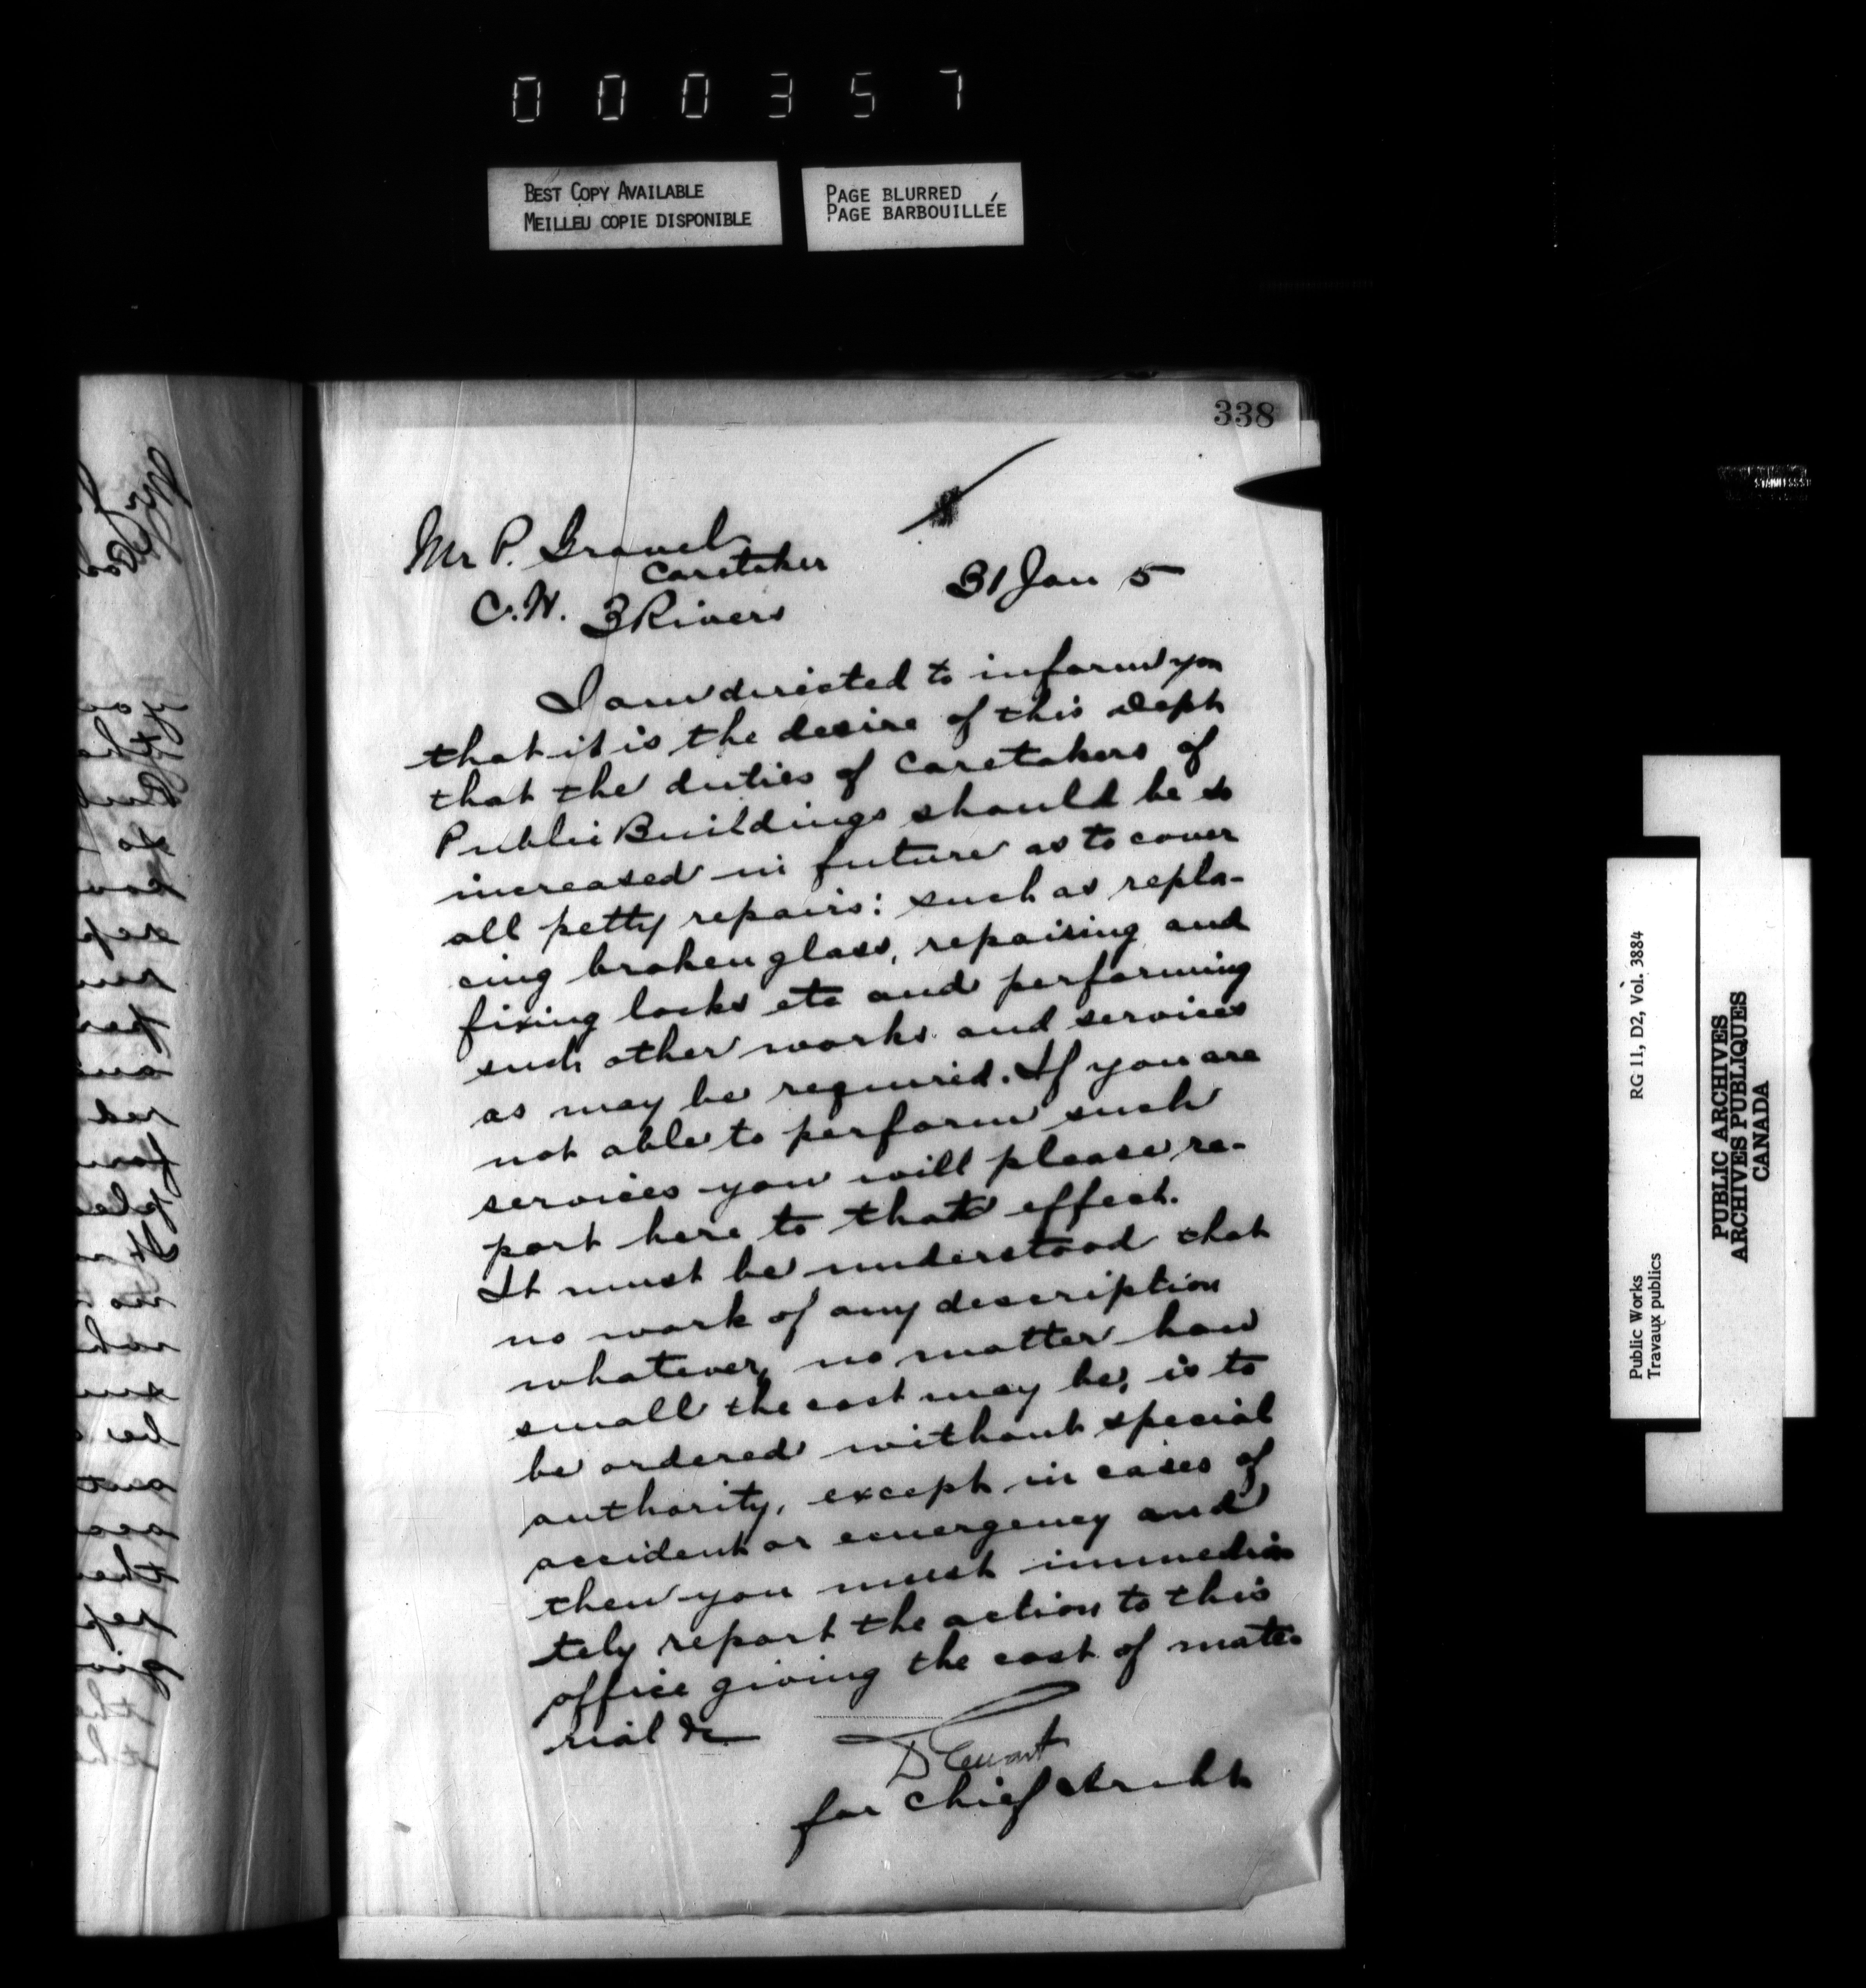 000357
BEST COPY AVAILABLE
MEILLEU COPIE DISPONIBLE
PAGE BLURRED
PAGE BARBOUILLÉE
338
Mr P. Gravel
Caretaker
C.H. 3 Rivers
31 Jan 5
I am directed to inform you
that it is the desire of this Dept
that the duties of Caretakers of
Public Buildings should be so
increased in future as to cover
all petty repairs: such as repla-
cing broken glass, repairing and
fixing locks etc and performing
such other works and services
as may be required. If you are
not able to perform such
services you will please re-
port here to that effect.
It must be understood that
no work of any description
whatever, no matter how
small the cost may be, is to
be ordered without special
authority, except in cases of
accident or emergency and
then you must immedia
tely report the action to this
office giving the cost of mate-
rial &c
D Ewart
for Chief Archt
Public Works
Travaux publics
RG 11, D2, Vol. 3884
PUBLIC ARCHIVES
ARCHIVES PUBLIQUES
CANADA